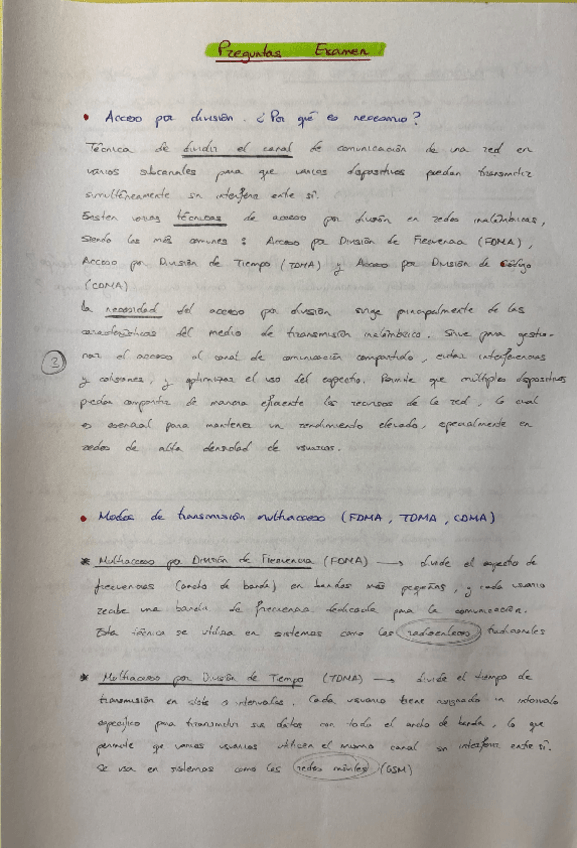 Preguntas Examen
• Acceso por división. ¿Por qué es necesario?
Técnica de dividir el canal de comunicación de una red en
varios subcanales para que varios dispositivos puedan transmitir
simultáneamente sin interferir entre sí.
Existen varias técnicas de acceso por división en redes inalámbricas,
siendo las más comunes: Acceso por División de Frecuencia (FDMA),
Acceso por División de Tiempo (TDMA) y Acceso por División de Código
(CDMA)
La necesidad del acceso por división surge principalmente de las
características del medio de transmisión inalámbrico. Sirve para gestio-
nar el acceso al canal de comunicación compartido, evitar interferencias
?
y colisiones, y optimizar el uso del espectro. Permite que múltiples dispositivos
puedan compartir de manera eficiente los recursos de la red, lo cual
es esencial para mantener un rendimiento elevado, especialmente en
redes de alta densidad de usuarios.
• Modos de transmisión multiacceso (FDMA, TDMA, CDMA)
* Multiacceso por División de Frecuencia (FDMA) → divide el espectro de
frecuencias (ancho de banda) en bandas más pequeñas, y cada usuario
recibe una banda de frecuencia dedicada para la comunicación.
Esta técnica se utiliza en sistemas como los radioenlaces tradicionales
* Multiacceso por División de Tiempo (TDMA) → divide el tiempo de
transmisión en slots o intervalos. Cada usuario tiene asignado un intervalo
específico para transmitir sus datos con todo el ancho de banda, lo que
permite que varios usuarios utilicen el mismo canal sin interferir entre sí.
Se usa en sistemas como las redes móviles (GSM)